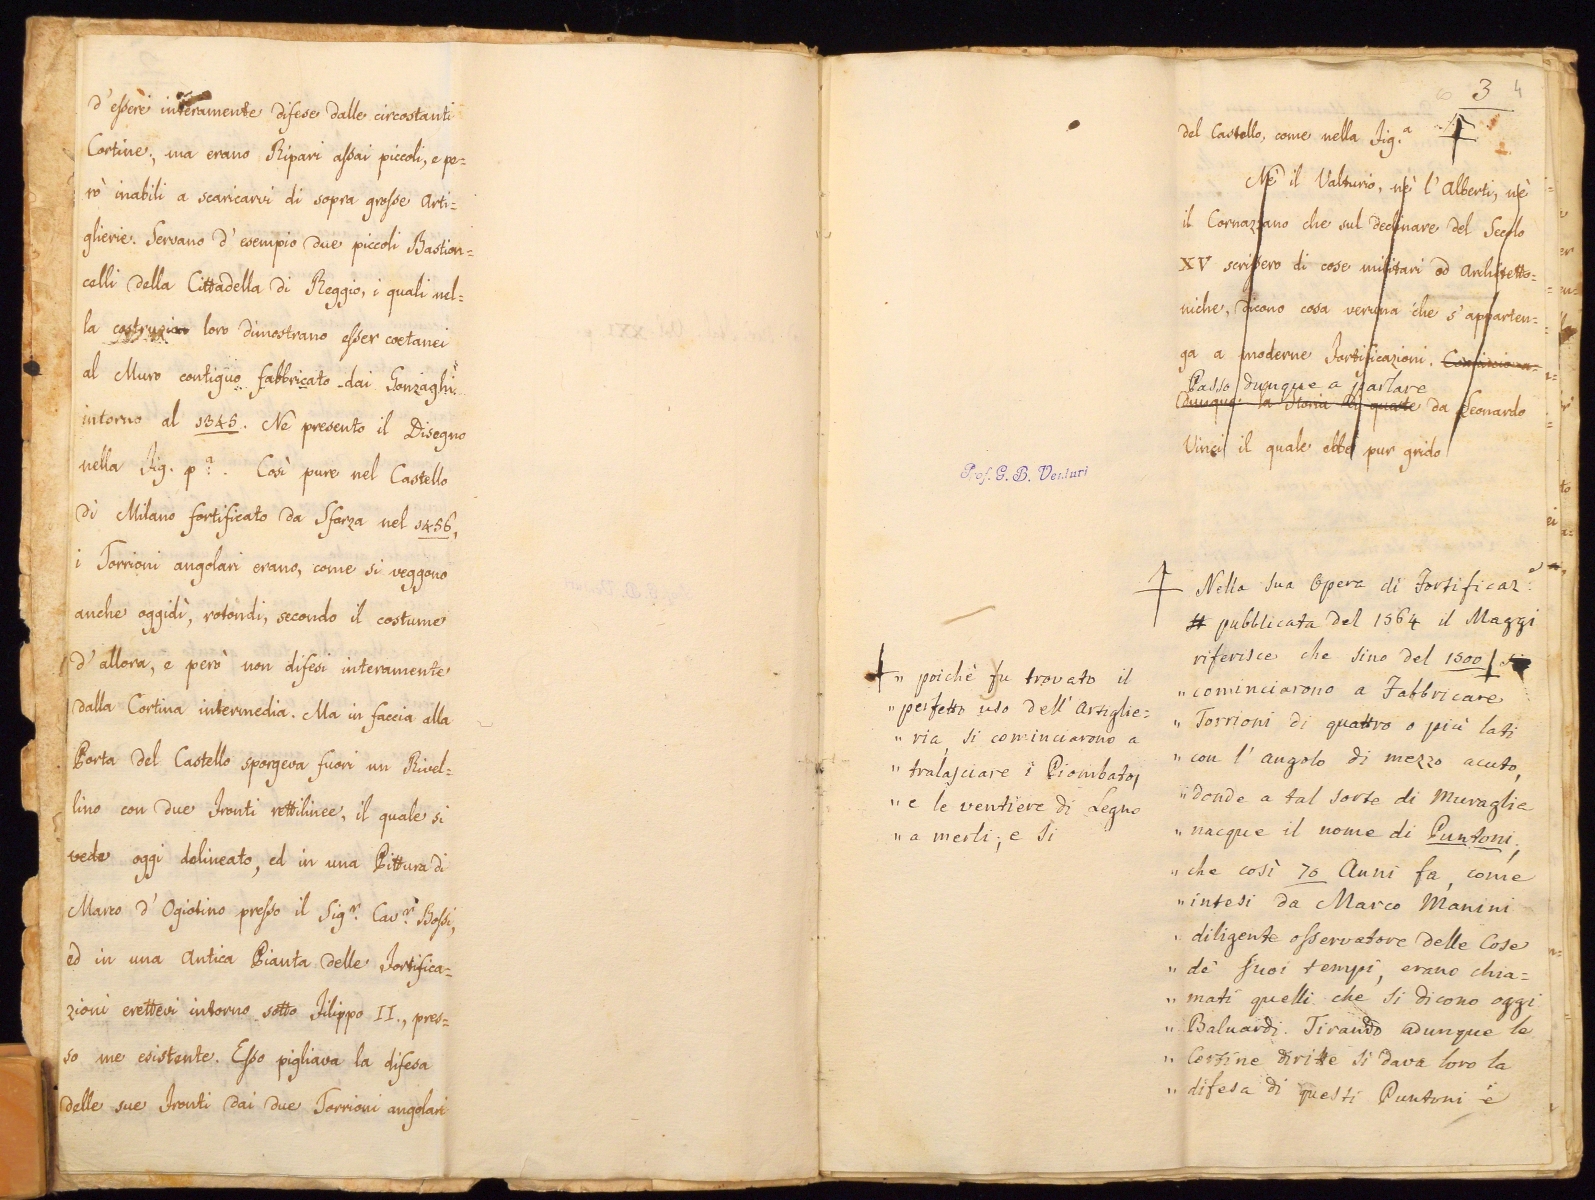 d'essere interamente difese dalle circostanti
Cortine, ma erano Ripari assai piccoli, e pe=
rò inabili a scaricarvi di sopra grosse Arti=
glierie. Servano d'esempio due piccoli Bastion=
celli della Cittadella di Reggio, i quali nel=
la costruzion loro dimostrano esser coetanei
al Muro contiguo fabbricato dai Gonzaghi
intorno al 1345. Ne presento il Disegno
nella Fig. pª. Così pure nel Castello
di Milano fortificato da Sforza nel 1456,
i Torrioni angolari erano, come si veggono
anche oggidì, rotondi, secondo il costume
d'allora, e però non difesi interamente
dalla Cortina intermedia. Ma in faccia alla
Porta del Castello sporgeva fuori un Rivel=
lino con due Fronti rettilinee, il quale si
vede oggi delineato, ed in una Pittura di
Marco d'Ogiotino presso il Sigr. Cavr. Bossi,
ed in una Antica Pianta delle Fortifica=
zioni erettevi intorno sotto Filippo II., pres=
so me esistente. Esso pigliava la difesa
delle sue Fronti dai due Torrioni angolari
6 3 4
del Castello, come nella Fig.ª
Nè il Valturio, nè l'Alberti, nè
il Cornazzano che sul declinare del Secolo
XV scrissero di cose militari od Architetto=
niche, dicono cosa veruna che s'apparten=
ga a moderne Fortificazioni. Comincion
Passo dunque a parlare
dunque la Storia di queste da Leonardo
Vinci il quale ebbe pur grido
Prof. G. B. Venturi
Nella sua Opera di Fortificaz.e
# pubblicata del 1564 il Maggi
riferisce che sino del 1500 si
" cominciarono a Fabbricare
" Torrioni di quattro o più lati
" con l'angolo di mezzo acuto,
" donde a tal sorte di Muraglie
" nacque il nome di Puntoni;
" che così 70 Anni fa, come
" intesi da Marco Manini
" diligente osservatore delle Cose
" de' suoi tempi, erano chia=
" mati quelli che si dicono oggi
" Baluardi. Tirando adunque le
" Cortine diritte si dava loro la
" difesa di questi Puntoni e
" poichè fu trovato il
" perfetto uso dell'Artiglie=
" ria, si cominciarono a
" tralasciare i Piombatoj
" e le ventiere di Legno
" a merli; e si